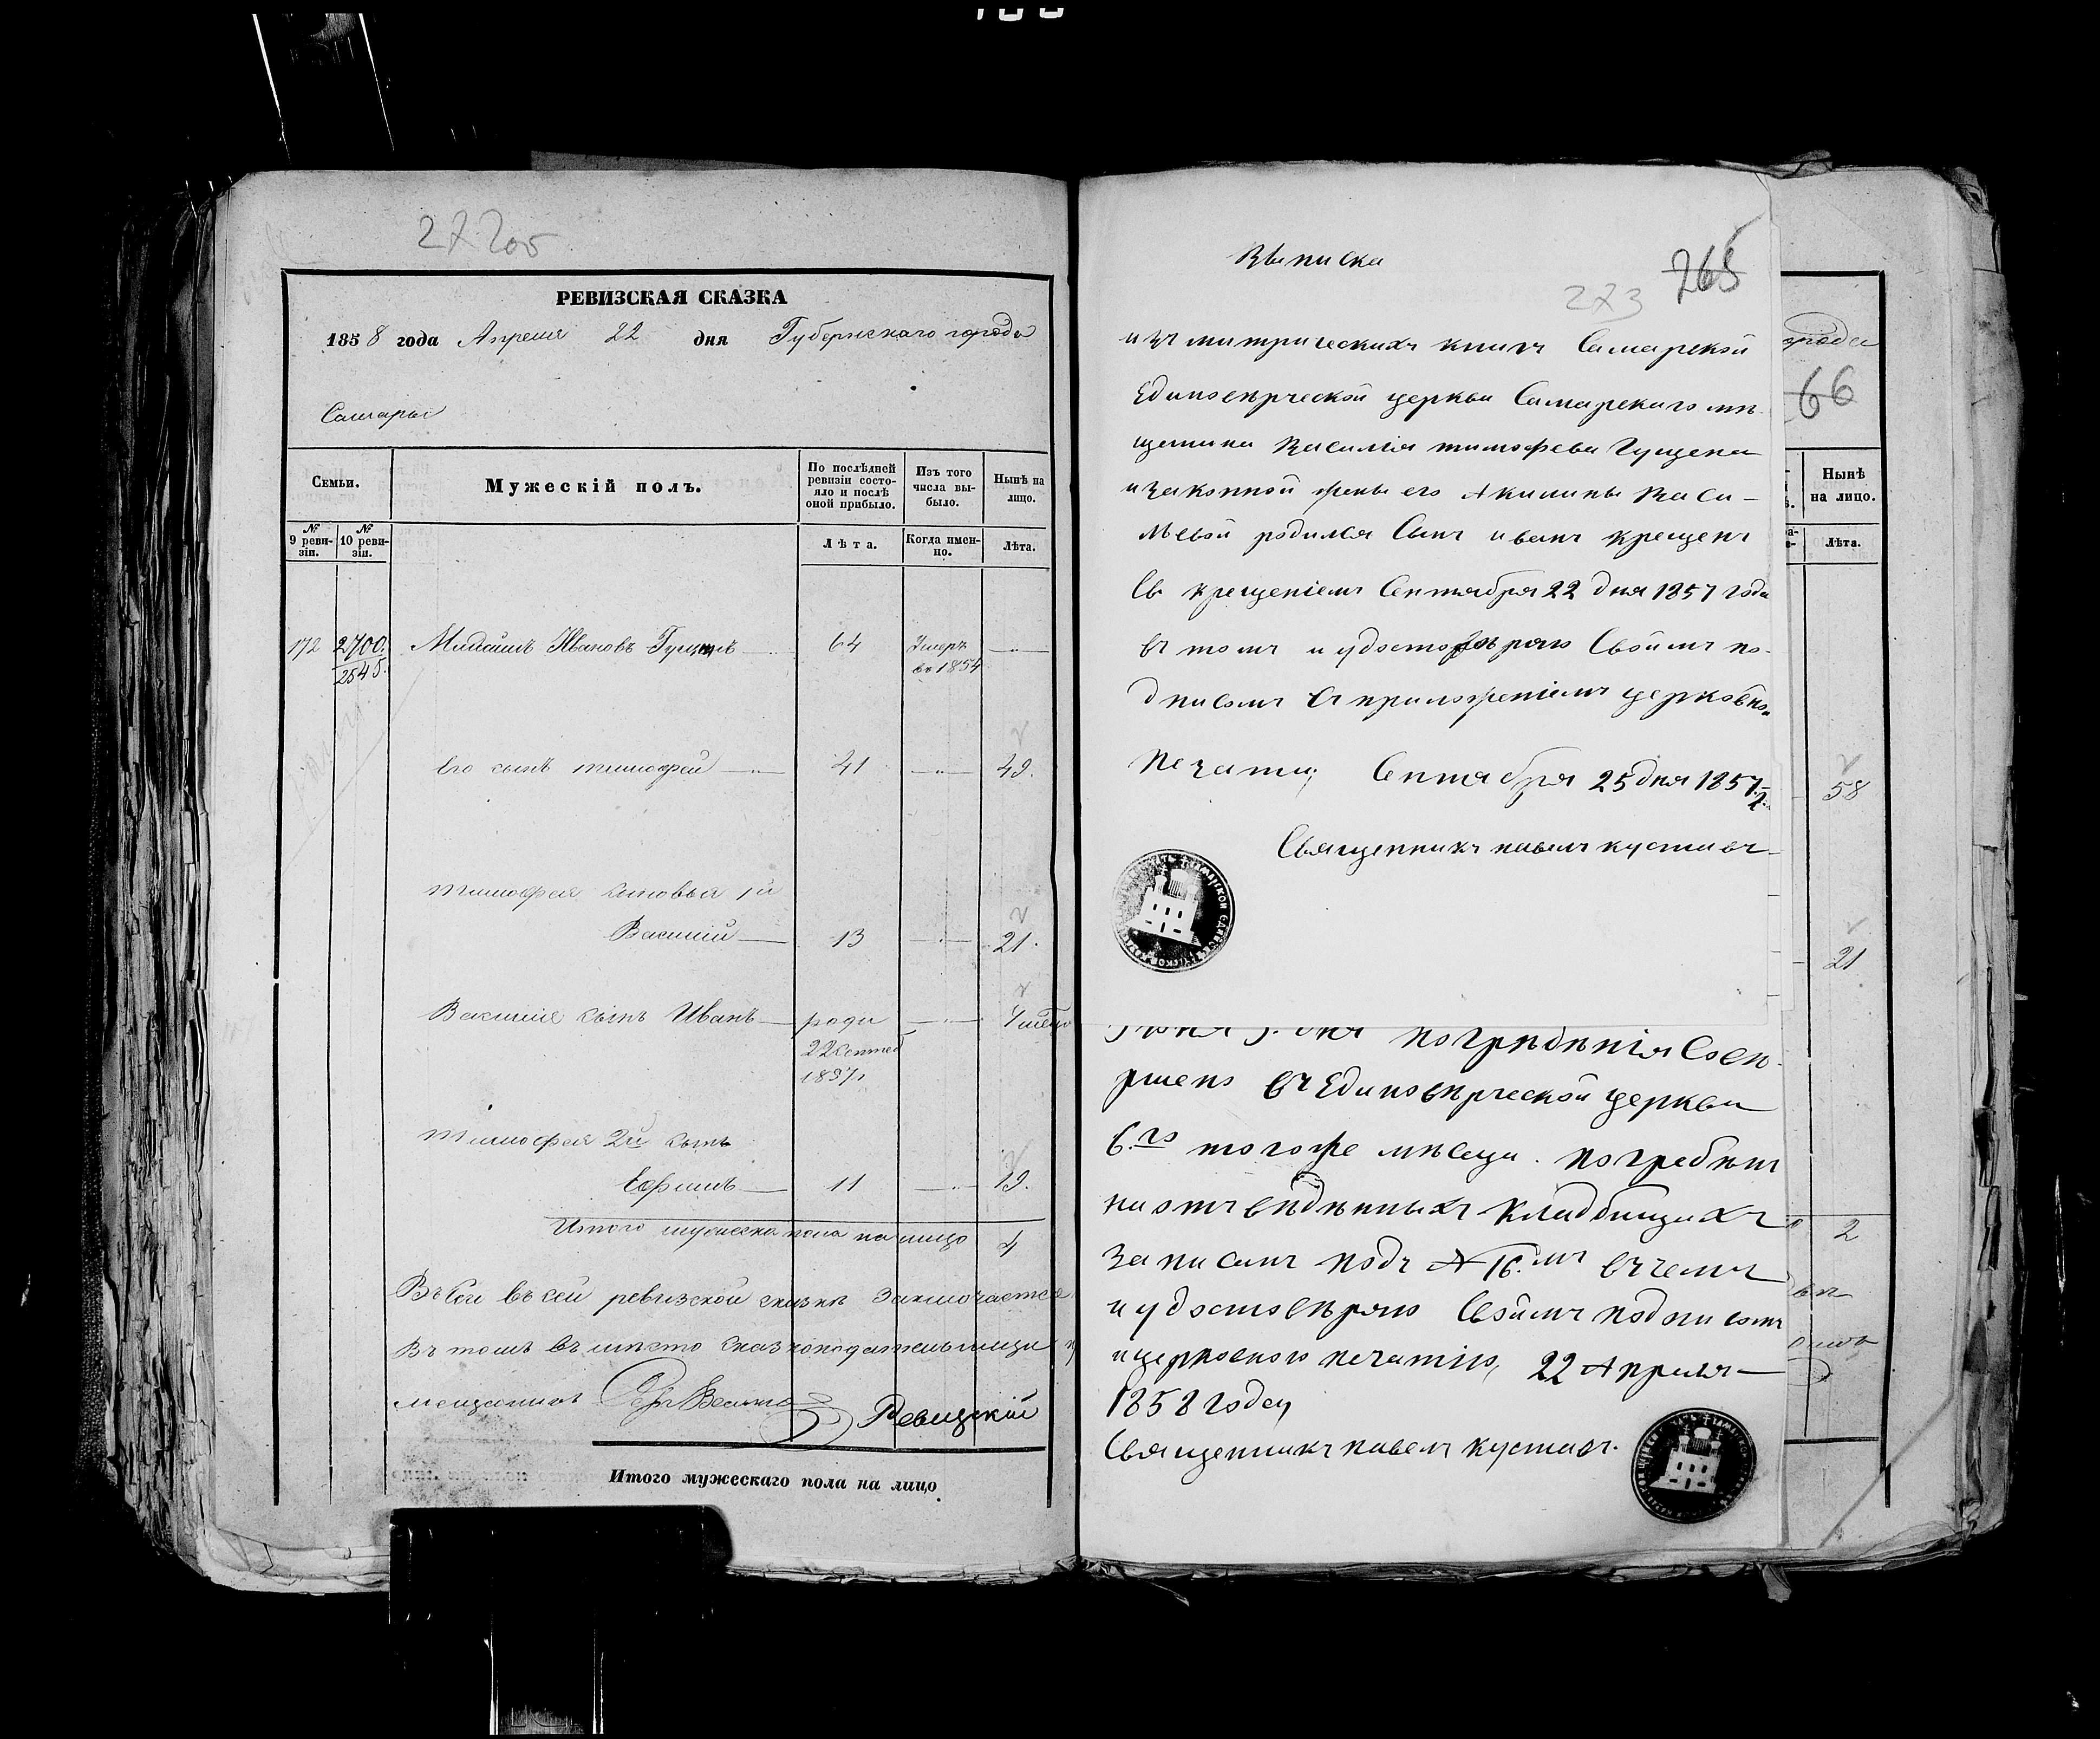 272об
РЕВИЗСКАЯ СКАЗКА
1858 года Апреля 22 дня Губернскаго города
Самары
Семьи.
Мужескій полъ.
По послѣдней ревизіи состояло и послѣ оной прибыло.
Изъ того числа выбыло.
Нынѣ на лицо.
№ 9 ревизіи.
№ 10 ревизіи.
Лѣта.
Когда именно.
Лѣта.
172 2700. Иванов Гущинъ 64 Умеръ
2545. въ 1854
Его сынъ тимофей 41 49.
тимофея сыновья 1й
Василий 13 21.
Василия сынъ Иванъ роди
22 Сентеб
1857.
тимофея 2й сынъ
Ефимъ 11 19.
Итого мужеска пола на лицо 4
въ сей ревизской сказке заключается
Въ томъ въ место сказкоподательницы
мещанинъ Ревицкій
Итого мужескаго пола на лицо
Выписка
265
273
изъ митрическихъ книгъ Самарской
Единоверческой церкви Самарскаго мѣ
щанина Василия тимофева Гущена
и законной жены его Акилины Васи-
льевой родился Сынъ иванъ крещенъ
Св. крещеніемъ Сентября 22 дня 1857 года
въ томъ и удостоверяю Своимъ по-
дписомъ Съ приложеніемъ церковно
печати; Сентября 25 дня 1857 г.
Священникъ павелъ кустовъ
погрѣбѣнія Сове
ршено въ Единоверческой церкви
6.го тогоже месяца. погребѣнъ
на отведѣнныхъ кладбищахъ
записанъ подъ №16.мъ въ чемъ
и удостоверяю Своимъ подписомъ
и церковною печатию, 22 Апреля
1858 года
Священникъ павелъ кустовъ.
города
66
Нынѣ на лицо.
Лѣта.
58
21
2